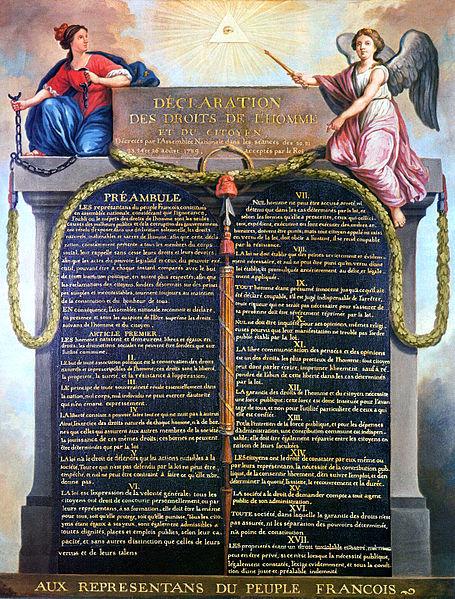 DÉCLARATION
DES DROITS DE L'HOMME
ET DU CITOYEN,
Décretés par l'Assemblée Nationale dans les séances des 20, 21,
23, 24 et 26 août 1789, acceptés par le Roi
PRÉAMBULE
LES représentans du peuple François, constitués
en assemblée nationale, considérant que l'ignorance,
l'oubli ou le mépris des droits de l'homme sont les seules
causes des malheurs publics et de la corruption des gouvernemens
ont résolu d'exposer dans une déclaration solemnelle, les droits
naturels, inaliénables et sacrés de l'homme; afin que cette décla-
ration, constamment présente à tous les membres du corps
social, leur rappelle sans cesse leurs droits et leurs devoirs;
afin que les actes du pouvoir législatif et ceux du pouvoir exé-
cutif, pouvant être à chaque instant comparés avec le but
de toute institution politique, en soient plus respectés; afin que
les réclamations des citoyens, fondées désormais sur des princi-
pes simples et incontestables, tournent toujours au maintien
de la constitution et du bonheur de tous.
EN conséquence, l'assemblée nationale reconnoît et déclare,
en présence et sous les auspices de l'Être suprême les droits
suivans de l'homme et du citoyen.
ARTICLE PREMIER.
LES hommes naissent et demeurent libres et égaux en
droits; les distinctions sociales ne peuvent être fondées que sur
l'utilité commune.
II.
LE but de toute association politique est la conservation des droits
naturels et imprescriptibles de l'homme; ces droits sont la liberté,
la propriété, la sureté, et la résistance à l'oppression.
III.
LE principe de toute souveraineté réside essentiellement dans
la nation, nul corps, nul individu ne peut exercer d'autorité
qui n'en émane expressement.
IV.
LA liberté consiste à pouvoir faire tout ce qui ne nuit pas à autrui
Ainsi, l'exercice des droits naturels de chaque homme, n'a de bor-
nes que celles qui assurent aux autres membres de la société
la jouissance de ces mêmes droits; ces bornes ne peuvent
être déterminées que par la loi
V.
LA loi n'a le droit de défendre que les actions nuisibles à la
société. Tout ce qui n'est pas défendu par la loi ne peut être
empêché, et nul ne peut être contraint à faire ce qu'elle n'or-
donne pas.
VI.
LA loi est l'expression de la volonté générale; tous les
citoyens ont droit de concourir personnellement, ou par
leurs représentans, à sa formation; elle doit être la même
pour tous, soit qu'elle protège, soit qu'elle punisse. Tous les cito-
yens étant égaux à ses yeux, sont également admissibles à
toutes dignités, places et emplois publics, selon leur ca-
pacité, et sans autres distinction que celles de leurs
vertus et de leurs talens
VII.
NUL homme ne peut être accusé, arrêté ni
détenu que dans les cas déterminés par la loi, et
selon les formes qu'elle a prescrites, ceux qui sollici-
tent, expédient, exécutent ou font exécuter des ordres ar-
bitraires, doivent être punis; mais tout citoyen appelé ou saisi
en vertu de la loi, doit obéir à l'instant, il se rend coupable
par la résistance.
VIII.
LA loi ne doit établir que des peines strictement et évidem-
ment nécessaire, et nul ne peut être puni qu'en vertu d'une
loi établie et promulguée antérieurement au délit, et légale-
ment appliquée.
IX.
TOUT homme étant présumé innocent jusqu'à ce qu'il ait
été déclaré coupable, s'il est jugé indispensable de l'arrêter,
toute rigueur qui ne serait pas nécessaire pour s'assurer de
sa personne doit être sévèrement réprimée par la loi.
X.
NUL ne doit être inquiété pour ses opinions, mêmes religi-
euses pourvu que leur manifestation ne trouble pas l'ordre
public établi par la loi.
XI.
LA libre communication des pensées et des opinions
est un des droits les plus precieux de l'homme; tout citoyen
peut donc parler écrire, imprimer librement, sauf à ré-
pondre de l'abus de cette liberté dans les cas déterminés
par la loi.
XII.
LA garantie des droits de l'homme et du citoyen nécessite
une force publique; cette force est donc instituée pour l'avan-
tage de tous, et non pour l'utilité particulière de ceux à qui
elle est confiée.
XIII.
POUR l'entretien de la force publique, et pour les dépenses
d'administration, une contribution commune est indispen-
sable; elle doit être également répartie entre les citoyens en
raison de leurs facultés.
XIV.
LES citoyens ont le droit de constater par eux même ou
par leurs représentans, la nécessité de la contribution pub-
lique, de la consentir librement, d'en suivre l'emploi, et d'en
déterminer la quotité, l'assiette, le recouvrement et la durée.
XV.
LA société a le droit de demander compte à tout agent
public de son administration.
XVI.
TOUTE société, dans laquelle la garantie des droits n'est
pas assurée, ni la séparation des pouvoirs déterminée,
n'a point de constitution
XVII.
LES propriétés étant un droit inviolable et sacré, nul ne
peut en être privé, si ce n'est lorsque la nécessité publique,
légalement constatée, l'exige évidemment, et sous la condi-
tion d'une juste et préalable indemnité
AUX REPRESENTANS DU PEUPLE FRANCOIS